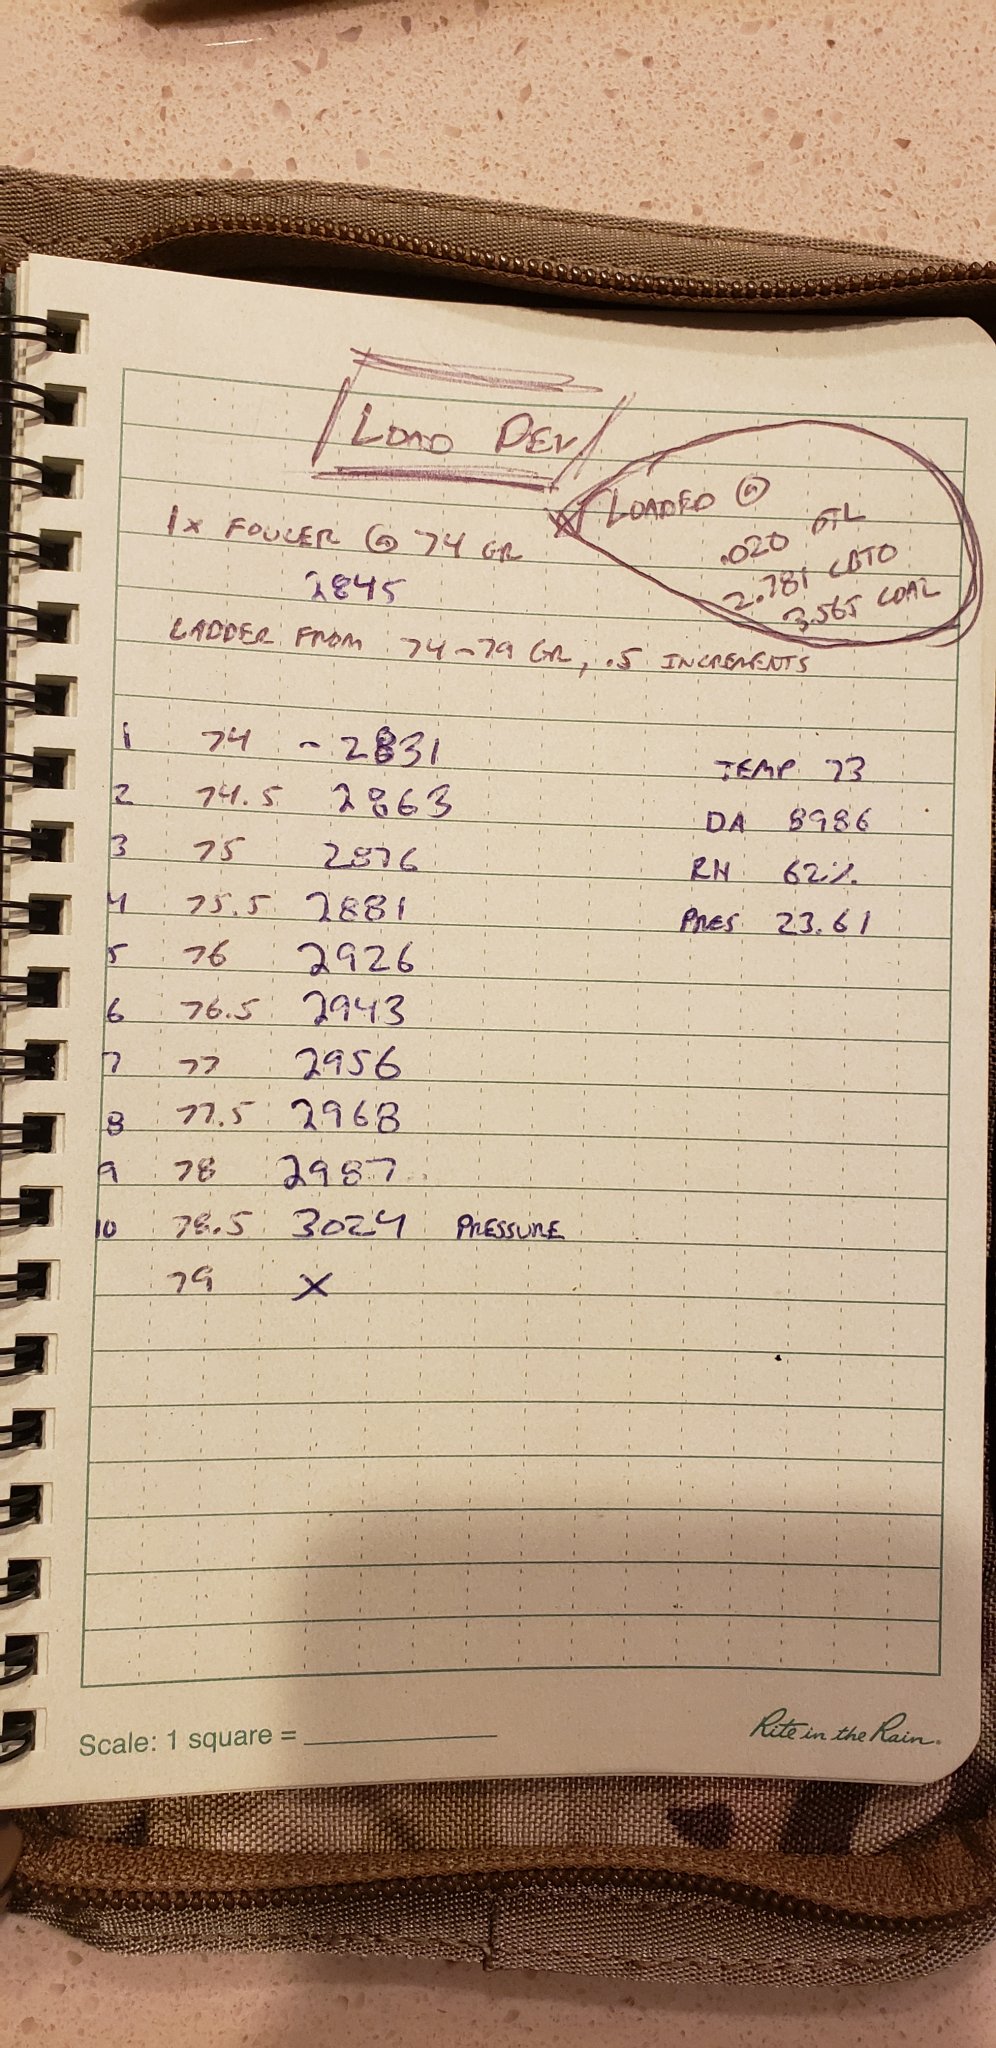 LOAD DEV
LOADED @
.020 OTL
2.781 CBTO
3.565 COAL
1x FOULER @ 74 GR
2845
LADDER FROM 74-79 GR, .5 INCREMENTS
1 74 - 2831
2 74.5 2863
3 75 2876
4 75.5 2881
5 76 2926
6 76.5 2943
7 77 2956
8 77.5 2968
9 78 2987
10 78.5 3024 PRESSURE
79 X
TEMP 73
DA 8986
RH 62%
PRES 23.61
Scale: 1 square =
Rite in the Rain.